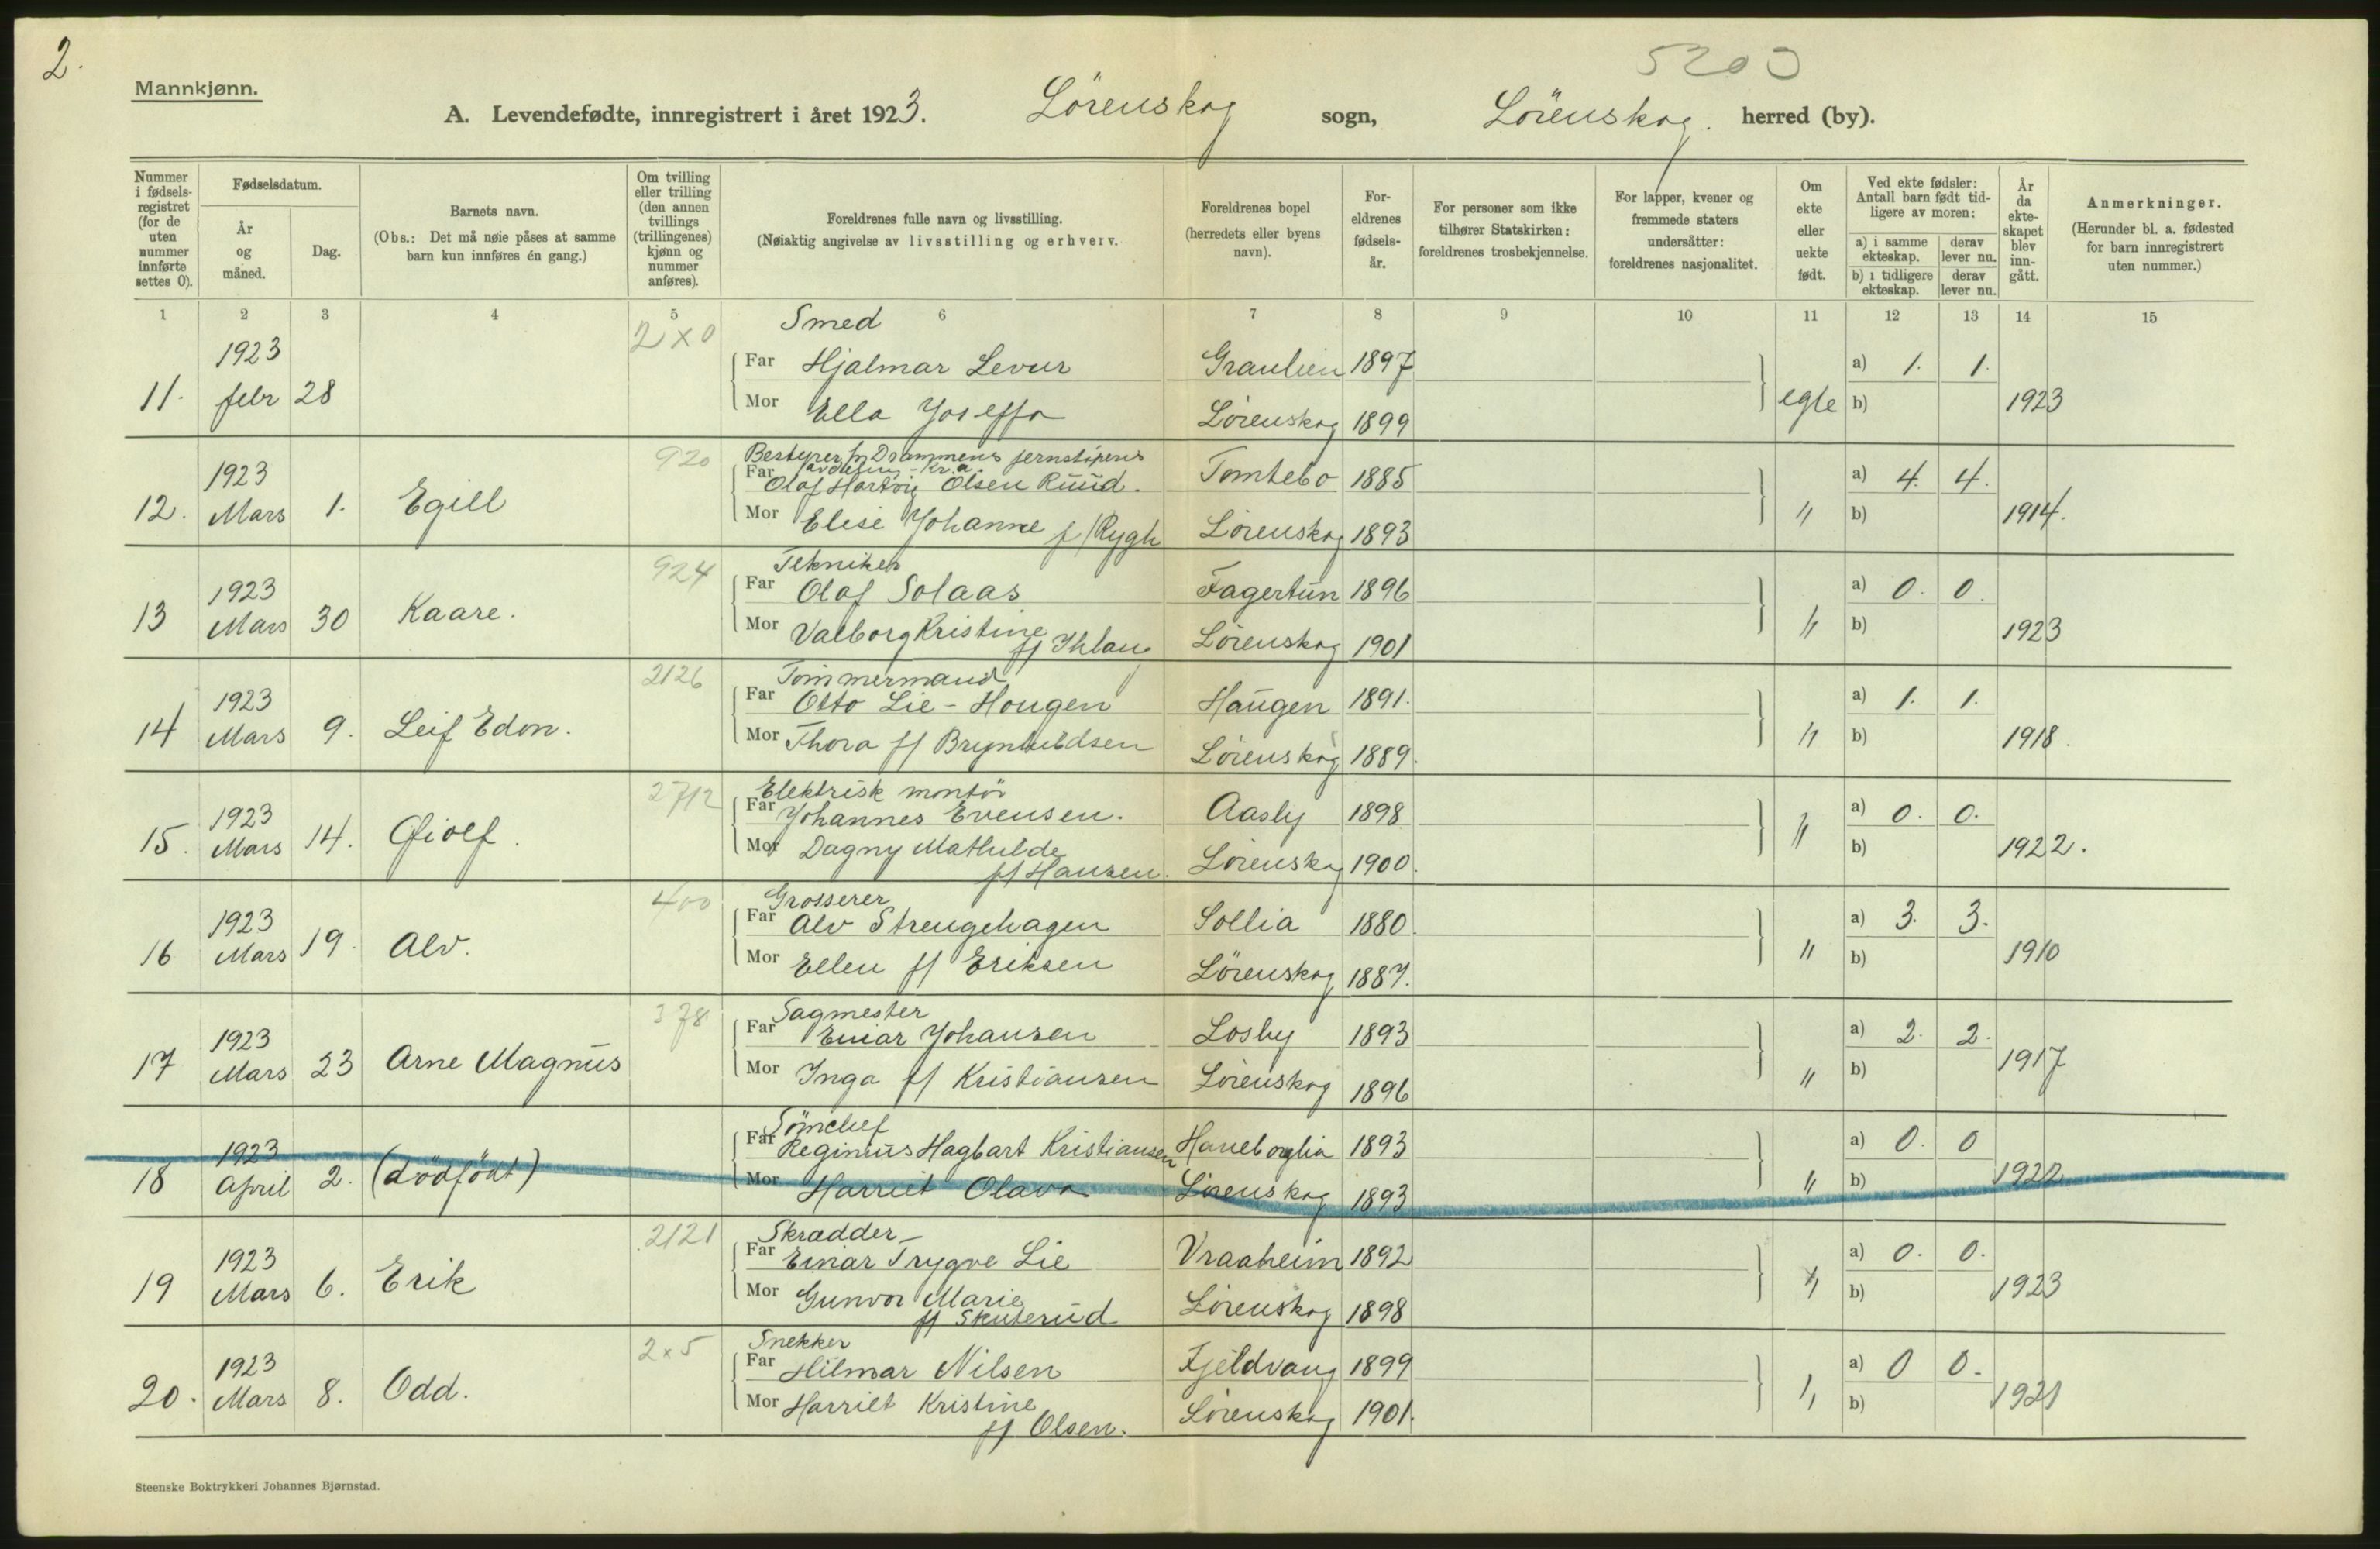 2.
5200
Mannkjønn.
A. Levendefødte, innregistrert i året 1923. Lörenskog sogn, Lörenskog. herred (by).
Nummer i fødselsregistret (for de uten nummer innførte settes 0).
Fødselsdatum.
År og måned.
Dag.
Barnets navn.
(Obs.: Det må nøie påses at samme barn kun innføres én gang.)
Om tvilling eller trilling (den annen tvillings (trillingenes) kjønn og nummer anføres).
Foreldrenes fulle navn og livsstilling.
(Nøiaktig angivelse av livsstilling og erhverv.
Foreldrenes bopel (herredets eller byens navn).
Foreldrenes fødselsår.
For personer som ikke tilhører Statskirken: foreldrenes trosbekjennelse.
For lapper, kvener og fremmede staters undersåtter: foreldrenes nasjonalitet.
Om ekte eller uekte født.
Ved ekte fødsler: Antall barn født tidligere av moren:
a) i samme ekteskap. derav lever nu.
b) i tidligere ekteskap. derav lever nu.
År da ekteskapet blev inngått.
Anmerkninger.
(Herunder bl. a. fødested for barn innregistrert uten nummer.)
1 2 3 4 5 6 7 8 9 10 11 12 13 14 15
2x0 Smed
1923 Far Hjalmar Levur Graulien 1897 a) 1. 1.
11. febr 28 Mor Ella Joseffa Lörenskog 1899 egte b) 1923
920 Bestyrer for Drammens jernstöperis
avdeling - Kr.a.
1923 Far Olaf Hartvig Olsen Ruud. Tomtebo 1885 a) 4. 4.
12. Mars 1. Egill Mor Elise Johanne f/Rygh Lörenskog 1893 " b) 1914.
924 Tekniker
1923 Far Olaf Solaas Fagertun 1896 a) 0. 0.
13 Mars 30 Kaare. Mor Valborg Kristine Lörenskog 1901 " b) 1923
f/ Ihlau
2126 Tömmermand
1923 Far Otto Lie-Hougen Haugen 1891. a) 1. 1.
14 Mars 9. Leif Edon. Mor Thora f/ Brynhildsen Lörenskog 1889. " b) 1918.
2712 Elektrisk montör
1923 Far Johannes Evensen. Aasly 1898 a) 0. 0.
15. Mars 14. Gjolf. Mor Dagny Mathilde Lörenskog 1900. " b) 1922.
f/ Hansen.
400 Grosserer
1923 Far Alv Strengehagen Sollia 1880. a) 3. 3.
16 Mars 19. Alv. Mor Ellen f/ Eriksen Lörenskog 1887. " b) 1910
378 Sagmester
1923 Far Einar Johansen Losby 1893 a) 2. 2.
17 Mars 23 Arne Magnus Mor Inga f/ Kristiansen Lörenskog 1896 " b) 1917
1923 Far Reginius Hagbart Kristiansen Haneborglia 1893 a) 0. 0
18 April 2. (dödfödt) Mor Harriet Olava Lörenskog 1893 " b) 1922
2121 Skrædder
1923 Far Einar Trygve Lie Vraaheim 1892 a) 0. 0.
19 Mars 6. Erik Mor Gunvor Marie Lörenskog 1898 " b) 1923
f/ Skuterud
2x5 Snekker
1923 Far Hilmar Nilsen Fjeldvang 1899 a) 0 0.
20. Mars 8. Odd. Mor Harriet Kristine Lörenskog 1901. " b) 1921
f/ Olsen.
Steenske Boktrykkeri Johannes Bjørnstad.